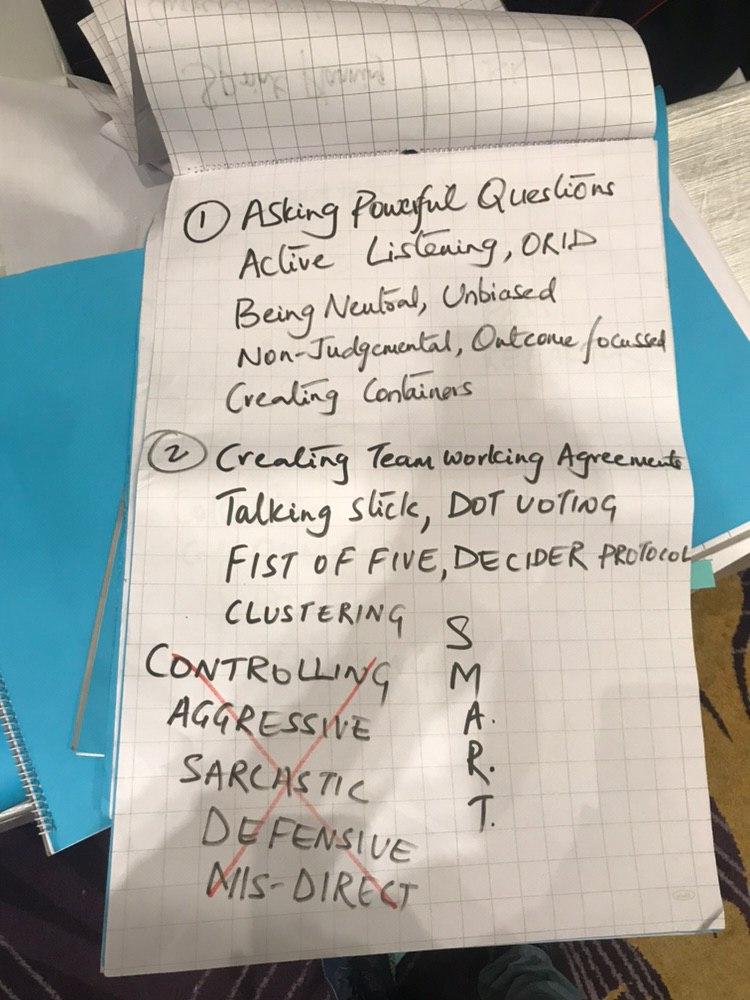 ① Asking Powerful Questions
Active Listening, ORID
Being Neutral, Unbiased
Non-Judgemental, Outcome focussed
Creating Containers
② Creating Team working Agreements
Talking stick, DOT VOTING
FIST OF FIVE, DECIDER PROTOCOL
CLUSTERING
CONTROLLING
AGGRESSIVE
SARCASTIC
DEFENSIVE
MIS-DIRECT
S
M
A.
R.
T.